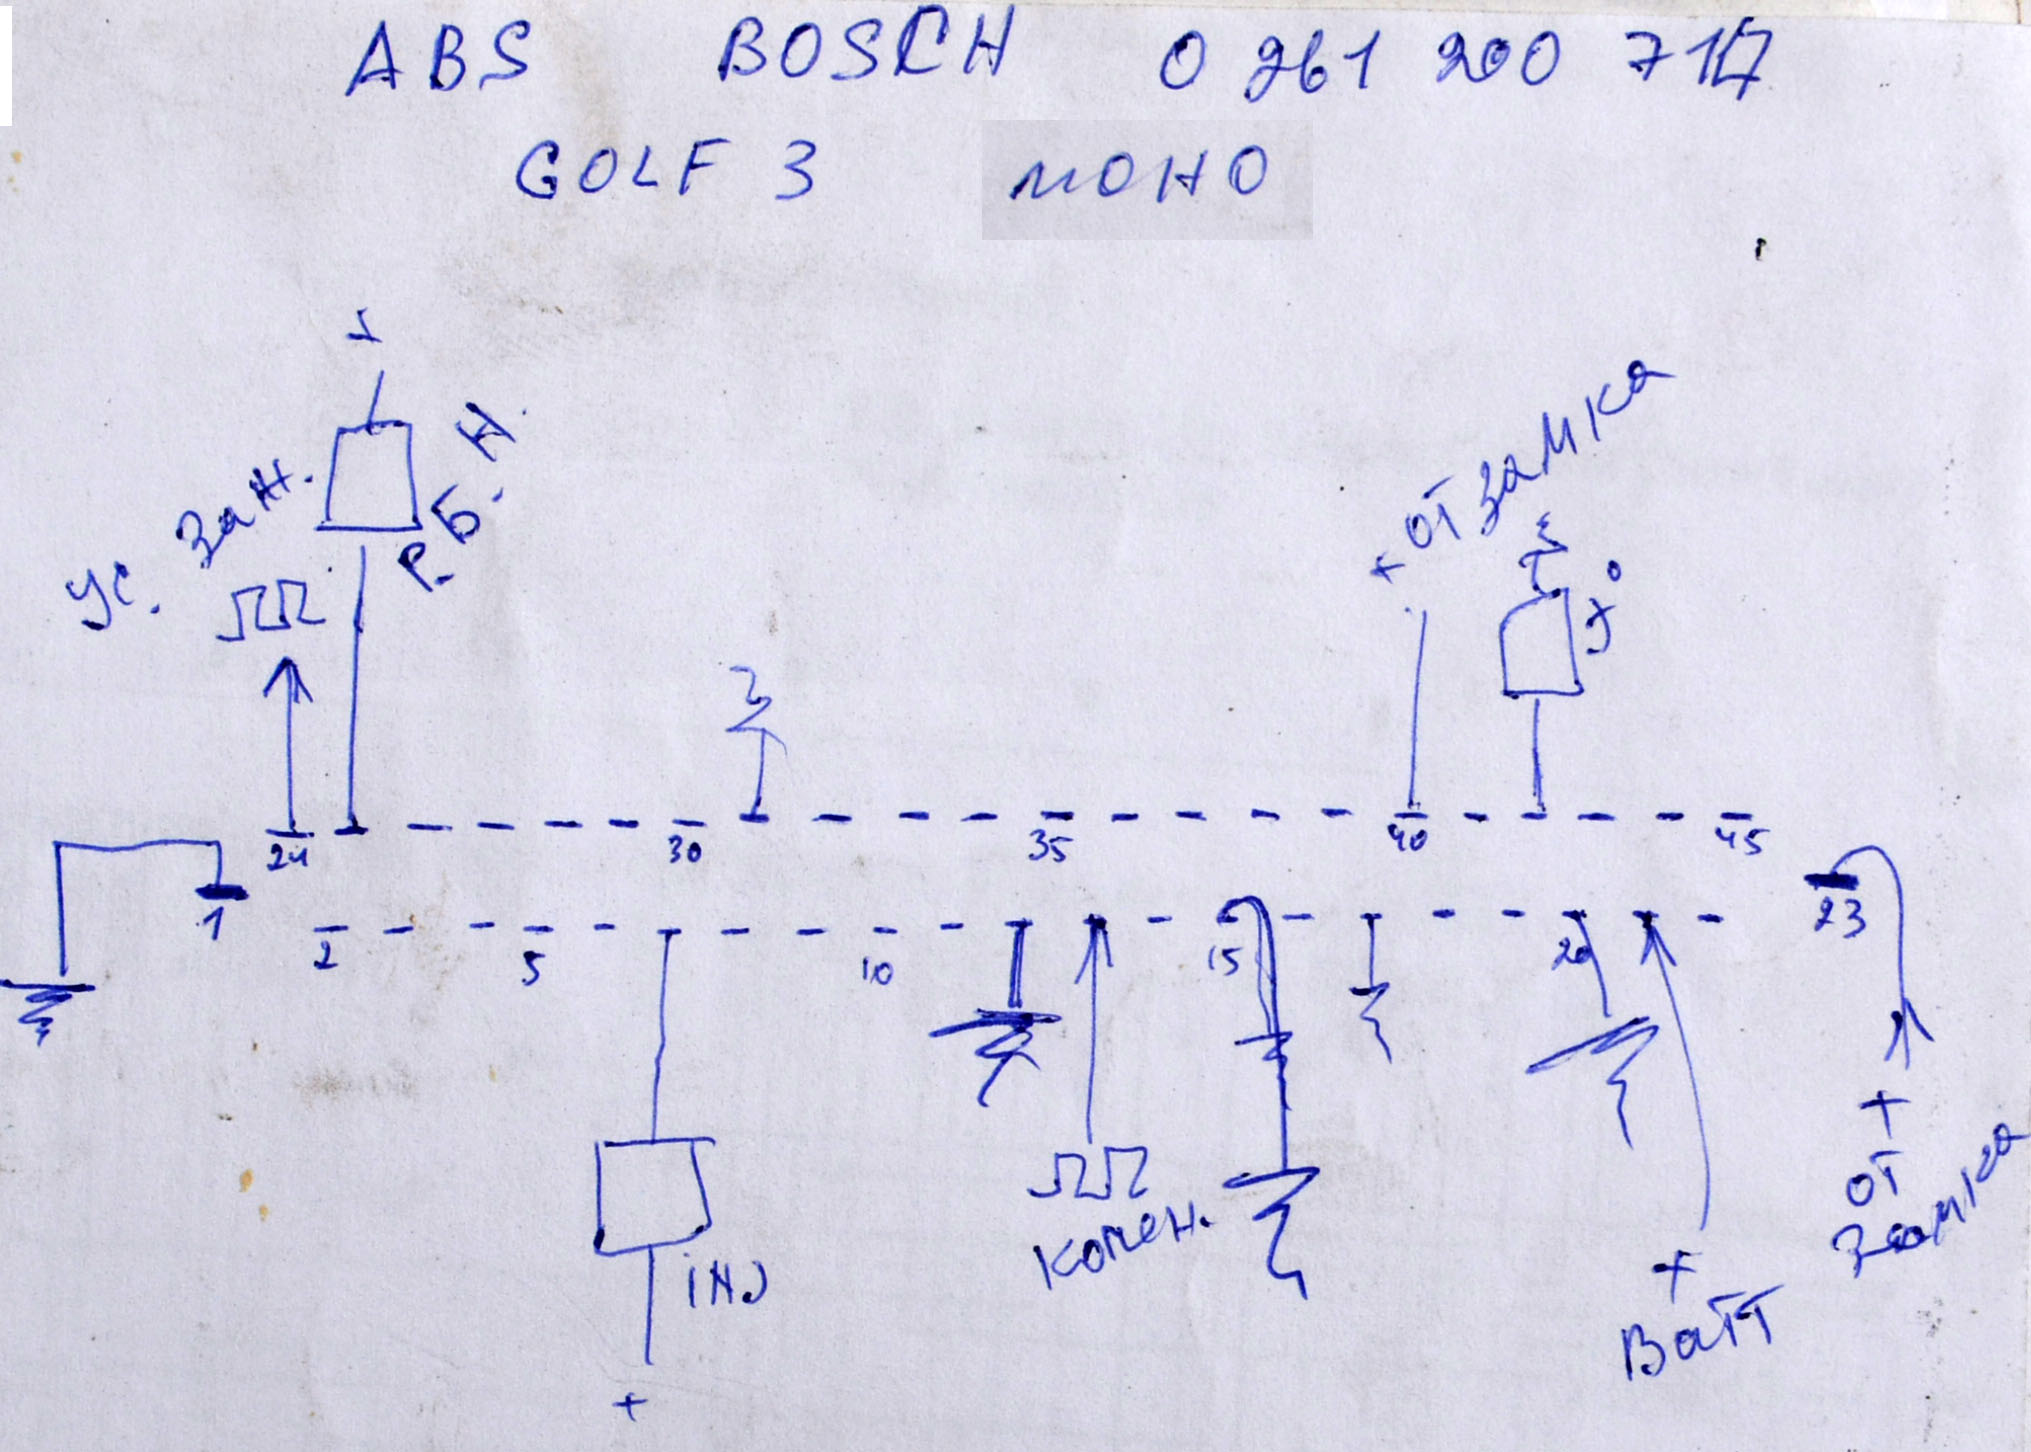 ABS BOSCH 0 261 200 717
GOLF 3 моно
+
Ус. Заж.
Р. Б. Н.
+ от замка
t°
24 30 35 40 45
1 23
2 5 10 15 20
+
от
замка
INJ
+
колен.
+
Ватт